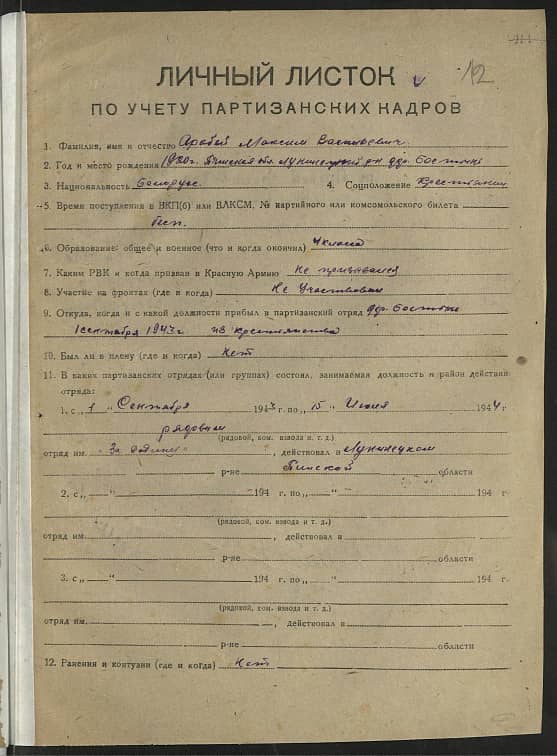 12
ЛИЧНЫЙ ЛИСТОК
ПО УЧЕТУ ПАРТИЗАНСКИХ КАДРОВ
1. Фамилия, имя и отчество Арабей Максим Васильевич.
2. Год и место рождения 1920г. Пинская обл. Лунинецкий р-н дер.
3. Национальность белорус. 4. Соцположение крестьянин
5. Время поступления в ВКП(б) или ВЛКСМ, № партийного или комсомольского билета
бесп.
6. Образование: общее и военное (что и когда окончил) 4 класса
7. Каким РВК и когда призван в Красную Армию не призывался
8. Участие на фронтах (где и когда) не участвовал
9. Откуда, когда и с какой должности прибыл в партизанский отряд дер.
1 сентября 1943 г. из крестьянства
10. Был ли в плену (где и когда) нет
11. В каких партизанских отрядах (или группах) состоял, занимаемая должность и район действий
отряда:
1. с „ 1 " Сентября 1943 г. по „ 15 " Июля 1944 г
рядовым
(рядовой, ком. взвода и т. д.)
отряд им. "За Родину", действовал в Лунинецком
р-не Пинской области
2. с „ " 194 г. по „ " 194 г.
(рядовой, ком. взвода и т. д.)
отряд им. , действовал в
р-не области
3. с „ " 194 г. по „ " 194 г.
(рядовой, ком. взвода и т. д.)
отряд им. , действовал в
р-не области
12. Ранения и контузии (где и когда) нет